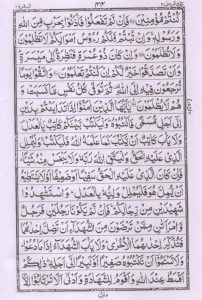 ۴۴
كُنْتُمْ مُّؤْمِنِيْنَ ۝ فَاِنْ لَّمْ تَفْعَلُوْا فَاْذَنُوْا بِحَرْبٍ مِّنَ اللّٰهِ
وَرَسُوْلِهٖ ۚ وَاِنْ تُبْتُمْ فَلَكُمْ رُءُوْسُ اَمْوَالِكُمْ ۚ لَا تَظْلِمُوْنَ
وَلَا تُظْلَمُوْنَ ۝ وَاِنْ كَانَ ذُوْ عُسْرَةٍ فَنَظِرَةٌ اِلٰى مَيْسَرَةٍ ؕ
وَاَنْ تَصَدَّقُوْا خَيْرٌ لَّكُمْ اِنْ كُنْتُمْ تَعْلَمُوْنَ ۝ وَاتَّقُوْا يَوْمًا
تُرْجَعُوْنَ فِيْهِ اِلَى اللّٰهِ ۗ ثُمَّ تُوَفّٰى كُلُّ نَفْسٍ مَّا كَسَبَتْ وَ
هُمْ لَا يُظْلَمُوْنَ ۝ يٰٓاَيُّهَا الَّذِيْنَ اٰمَنُوْٓا اِذَا تَدَايَنْتُمْ بِدَيْنٍ
اِلٰٓى اَجَلٍ مُّسَمًّى فَاكْتُبُوْهُ ؕ وَلْيَكْتُبْ بَّيْنَكُمْ كَاتِبٌۢ بِالْعَدْلِ
وَلَا يَاْبَ كَاتِبٌ اَنْ يَّكْتُبَ كَمَا عَلَّمَهُ اللّٰهُ فَلْيَكْتُبْ ۚ وَلْيُمْلِلِ
الَّذِيْ عَلَيْهِ الْحَقُّ وَلْيَتَّقِ اللّٰهَ رَبَّهٗ وَلَا يَبْخَسْ مِنْهُ شَيْئًا ؕ فَاِنْ كَانَ
الَّذِيْ عَلَيْهِ الْحَقُّ سَفِيْهًا اَوْ ضَعِيْفًا اَوْ لَا يَسْتَطِيْعُ
اَنْ يُّمِلَّ هُوَ فَلْيُمْلِلْ وَلِيُّهٗ بِالْعَدْلِ ؕ وَاسْتَشْهِدُوْا
شَهِيْدَيْنِ مِنْ رِّجَالِكُمْ ۚ فَاِنْ لَّمْ يَكُوْنَا رَجُلَيْنِ فَرَجُلٌ
وَّامْرَاَتٰنِ مِمَّنْ تَرْضَوْنَ مِنَ الشُّهَدَآءِ اَنْ تَضِلَّ اِحْدٰىهُمَا
فَتُذَكِّرَ اِحْدٰىهُمَا الْاُخْرٰى ؕ وَلَا يَاْبَ الشُّهَدَآءُ اِذَا مَا دُعُوْا ؕ
وَلَا تَسْـَٔمُوْٓا اَنْ تَكْتُبُوْهُ صَغِيْرًا اَوْ كَبِيْرًا اِلٰٓى اَجَلِهٖ ؕ ذٰلِكُمْ
اَقْسَطُ عِنْدَ اللّٰهِ وَاَقْوَمُ لِلشَّهَادَةِ وَاَدْنٰٓى اَلَّا تَرْتَابُوْٓا اِلَّآ